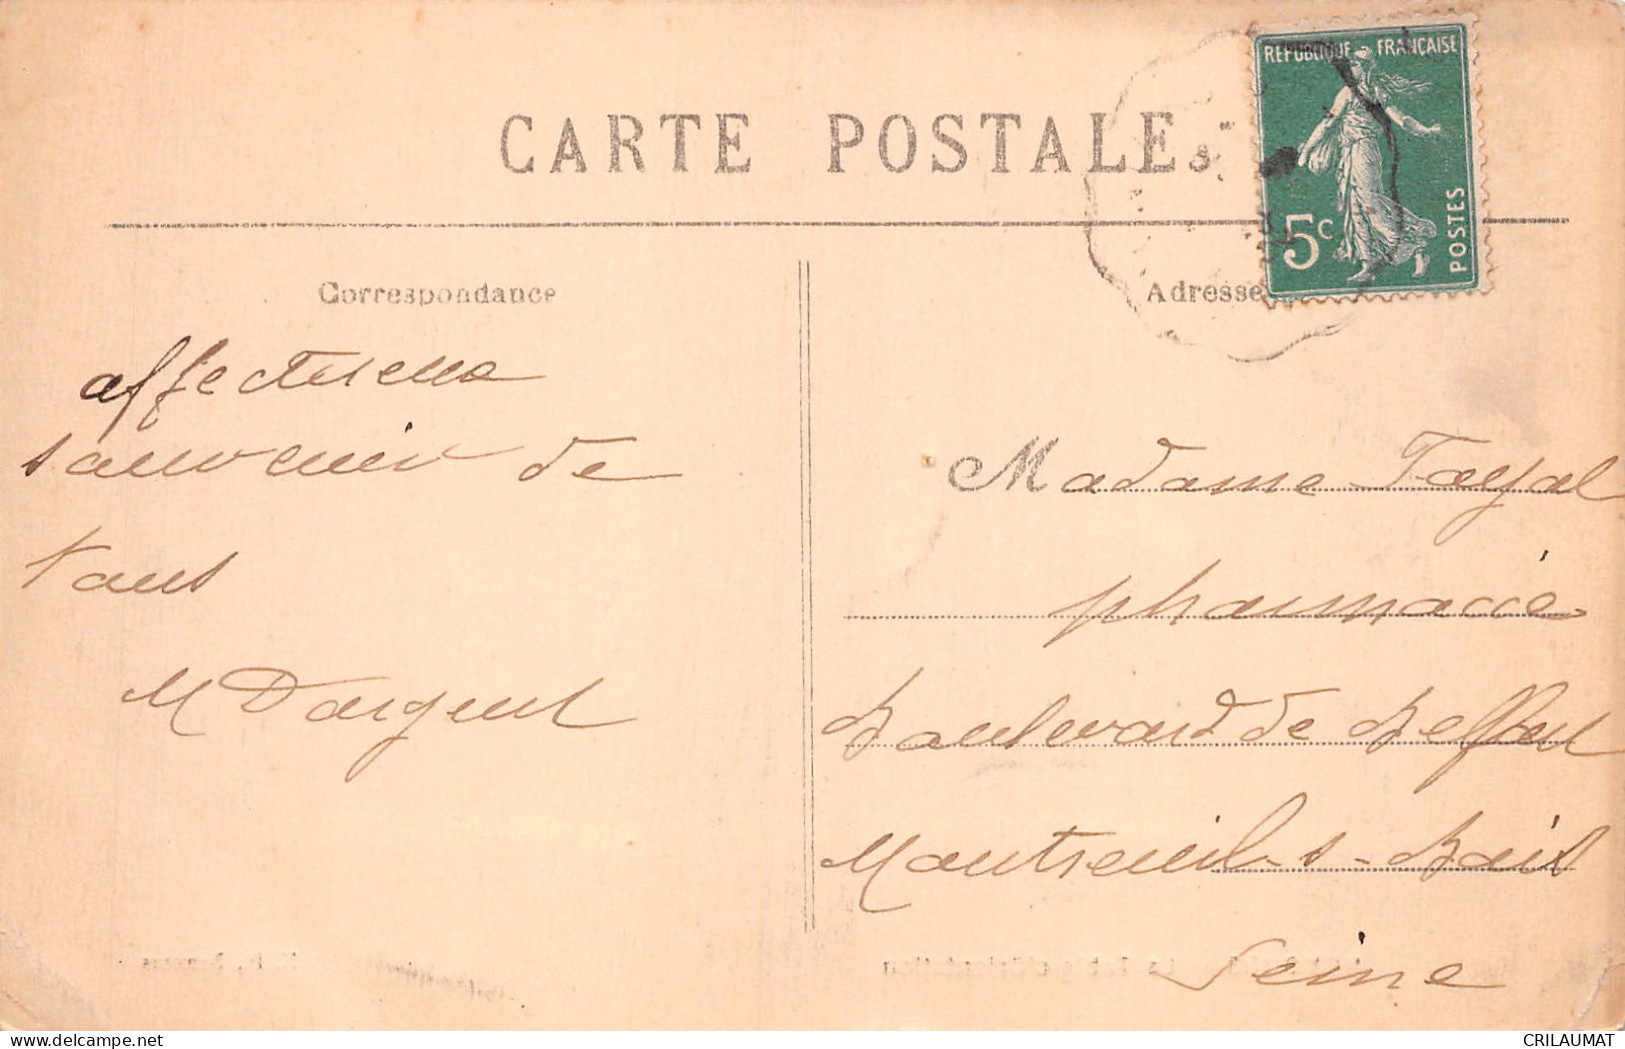 CARTE POSTALE
REPUBLIQUE FRANÇAISE
5c
POSTES
Correspondance
Adresse
affectueux
souvenir de
tous
M Dargent
Madame
pharmacie
Boulevard de Belfort
Montreuil-s-Bois
Seine
CRILAUMAT